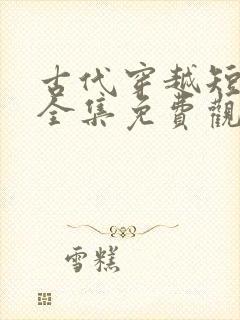 古代穿越短
全集免費觀
雪糕